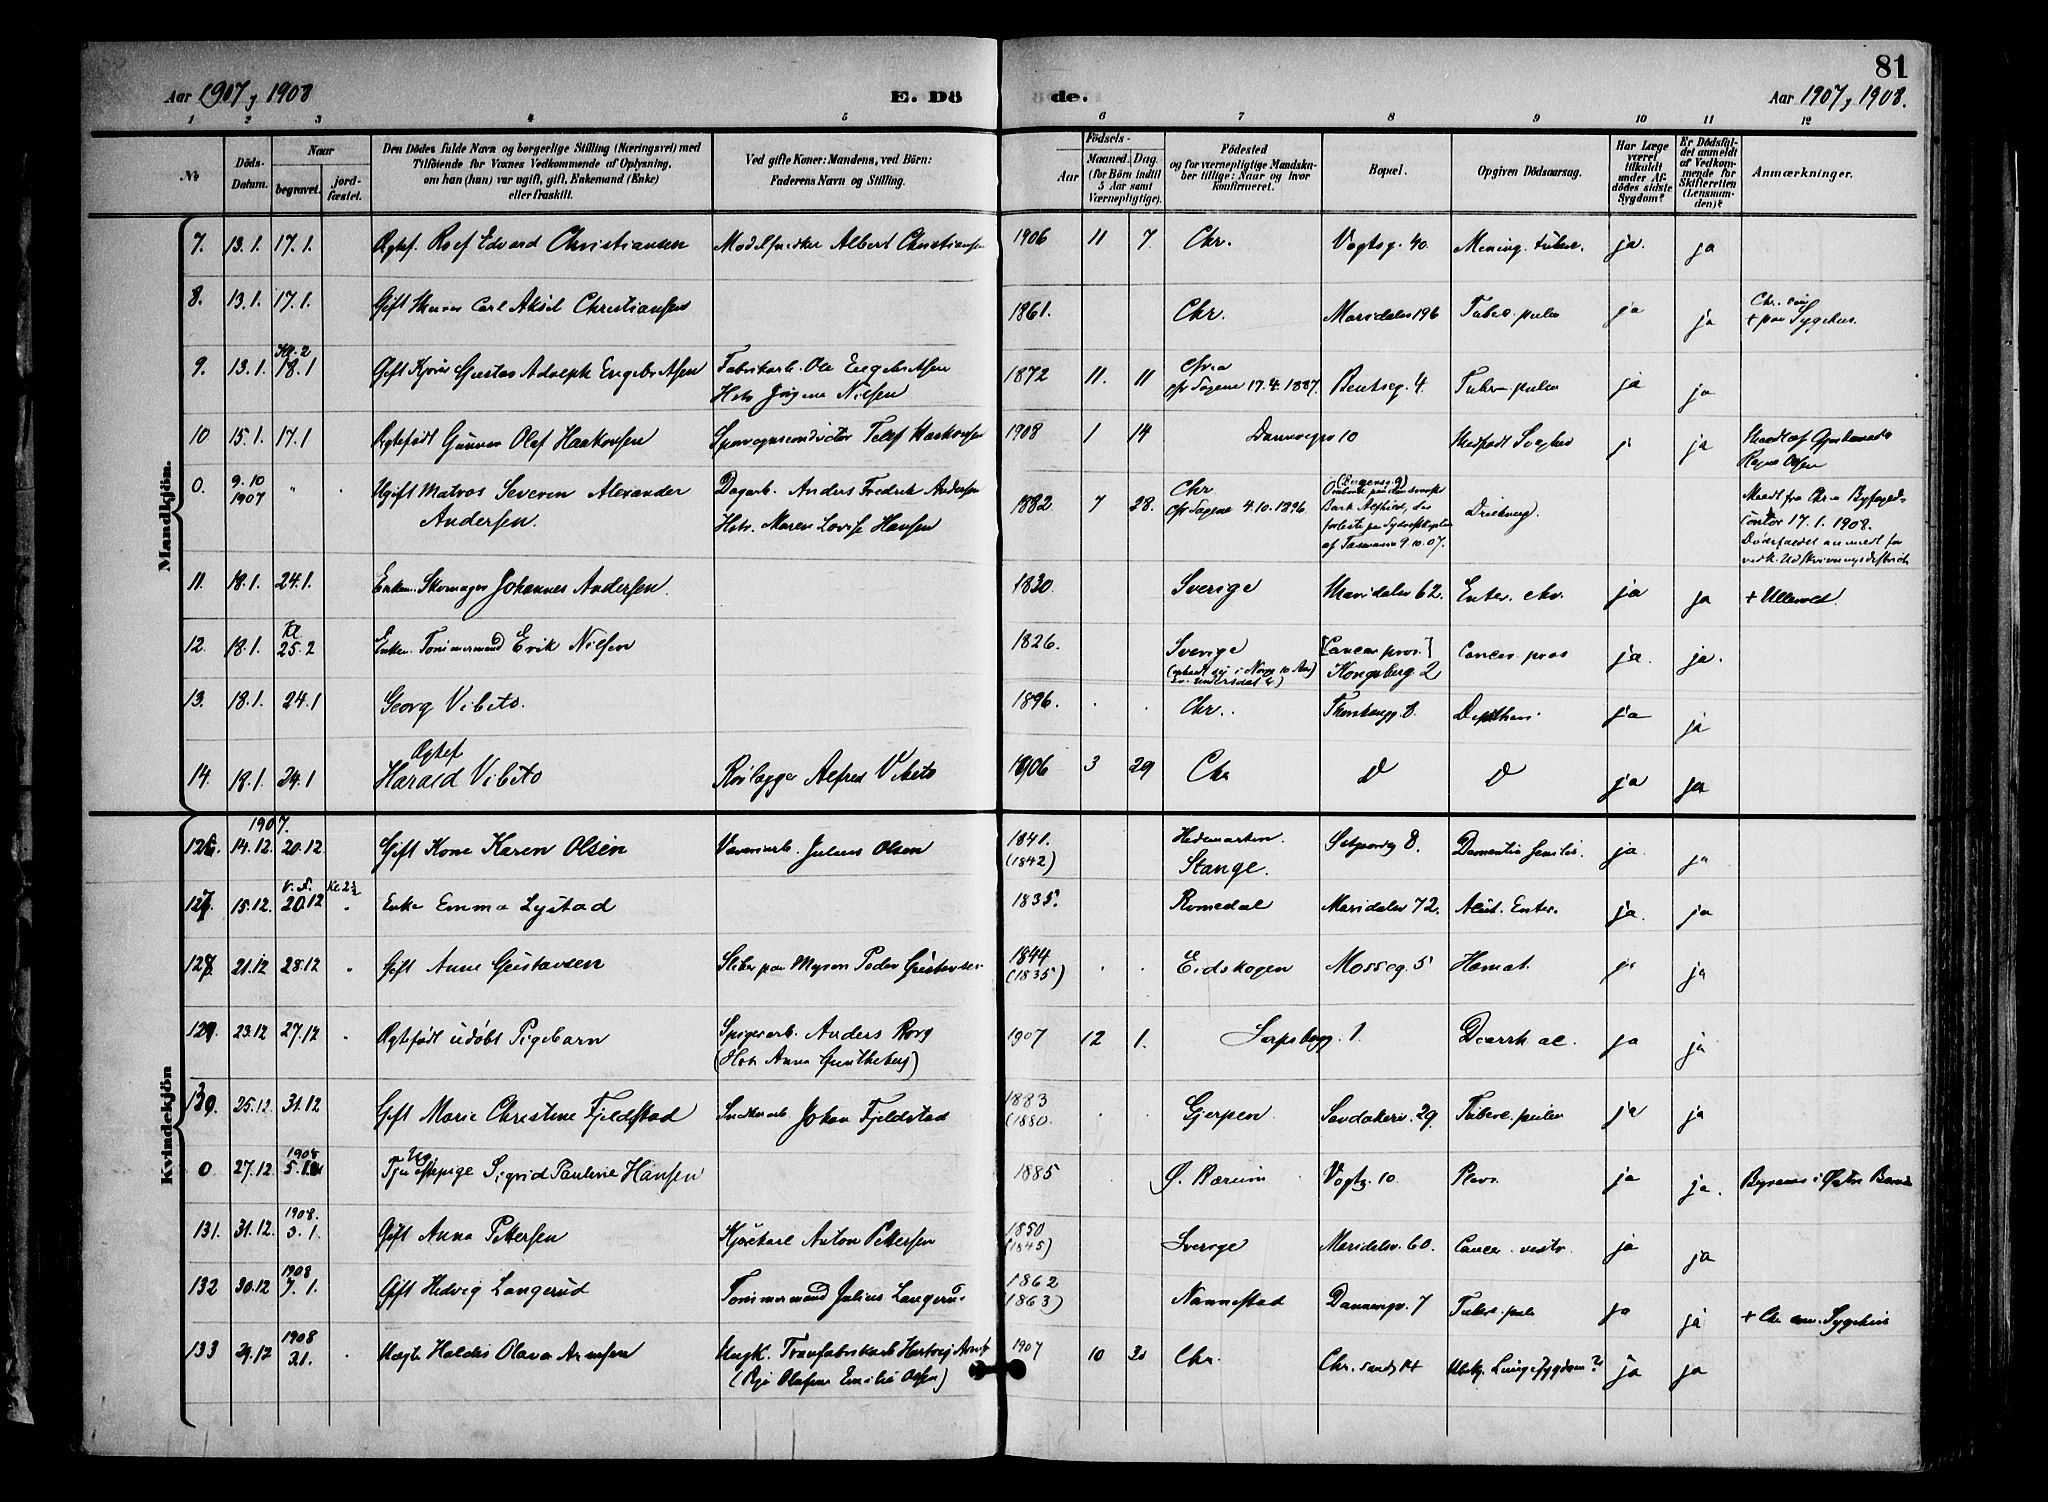 81
Aar 1907, 1908
E. Dö de.
Aar 1907, 1908.
1 2 3 4 5 6 7 8 9 10 11 12
No
Döds-Datum.
Naar
begravet.
jord-fæstet.
Den Dödes fulde Navn og borgerlige Stilling (Næringsvei) med
Tilföiende for Voxnes Vedkommende af Oplysning,
om han (hun) var ugift, gift, Enkemand (Enke)
eller fraskilt.
Ved gifte Koner: Mandens, ved Börn:
Faderens Navn og Stilling.
Födsels-
Aar
Maaned. Dag.
(for Börn indtil
5 Aar samt
Værnepligtige).
Födested
og for værnepligtige Mandska-
ber tillige: Naar og hvor
Konfirmeret.
Bopæl.
Opgiven Dödsaarsag.
Har Læge
været
tilkaldt
under Af-
dödes sidste
Sygdom?
Er Dödsfal-
det anmeldt
af Vedkom-
mende for
Skifteretten
(Lensman-
den)?
Anmærkninger.
Mandkjön.
7. 13.1. 17.1. Ægtef. Rolf Edvard Christiansen Modelsnedker Albert Christiansen 1906 11 7. Chr. Vogtsg. 40. Mening. tuberc. ja. ja
8. 13.1. 17.1. Gift Carl Aksel Christiansen 1861. Chr. Maridalsv 196 Tuberc. pulm ja ja + paa Sygehus.
9. 13.1. Kl. 2 18.1 Gift Gustav Adolph Engebretsen Fabrikarb. Ole Engebretsen
Nilsen 1872 11. 11 Sagene 17.4.1887. Bentseg. 4. Tuberc pulm ja ja
10 15.1. 17.1 Ægtefödt Gunnar Olaf Haakonsen Sporvognsconductör Haakonsen 1908 1 14 Dannevigsv 10 Medfödt Svaghed j ja
Olsen
0. 9.10 1907 " Ugift Matros Severin Alexander
Andersen. Dagarb. Anders Fredrik Andersen
Hstr. Maren Lovise Hansen 1882 7 28. Chr
Sagene 4.10.1896. Bark
af Tasmania 9.10.07. Drukning. Meldt fra Chr.a Byfogeds
Contor 17.1.1908.
Dödsfaldet anmeldt for
vedk. Udskrivningsdistrict
11. 18.1. 24.1. Enkem. Skomager Johannes Andersen. 1830. Sverige Maridalsv 62. Enter. chr. ja ja + Ullevold.
12. 18.1. Kl 25.2 Enkem. Tömmermand Erik Nilsen 1826. Sverige
(opholdt sig i Norge 10 Aar) [Cancer pros.]
Kongsberg. 2 Cancer pros ja. ja.
13. 18.1. 24.1 Georg Vibito. 1896. Chr. Thorsbergg. 8. Diphtheri ja ja
14. 18.1. 24.1 Ægtef
Harald Vibito Rörlægger Alfred Vibito 1906 3 29 Chr D D ja ja
Kvindekjön
1907.
126. 14.12. 20.12 Gift Kone Karen Olsen Julius Olsen 1841.
(1842) Hedemarken
Stange. 8. Dementia senilis. ja. ja
127. 15.12. 20.12 Kl. 2½ Enke Emma Lystad 1835. Romedal Maridalsv 72. Akut. Enter. ja. ja
21.12 28.12 " Gift Anne Gustavsen Sliber paa Myren Peder Gustavsen 1844
(1835) Eidskogen Mosseg. 5 Hæmat. ja ja
129. 23.12 27.12 " Ægtefödt udöbt Pigebarn Spigerarb. Anders Borg
(Hstr Anna Guntheberg) 1907 12 1. Sarpsborgg. 1. Diarrh. ac. ja ja
130. 25.12. 31.12 Gift Marie Christine Fjeldstad Snedkerarb Johan Fjeldstad 1883
(1880. Gjerpen Sandakerv. 29. Tuberc. pulm ja ja
0 27.12. 1908 5.1. Ug. Tjenestepige Sigrid Pauline Hansen 1885 Ø. Bærum Vogtg. 10. ja ja.
131. 31.12. 1908. 3.1. Gift Anna Pettersen Kjörekarl Anton Pettersen 1850
(1845) Sverige Maridalsv. 60. Cancer. ventr. ja ja
132 30.12 1908 7.1. Gift Hedvig Langerud Tömmermand Julius Langerud 1862
1863) Nannestad Dannevigsv. 7 Tuberc. pulm ja ja + Chr. Sygehus
133 29.12 1908 3.1. " Uægte Haldis Olava Arntsen Ungk. Hartvig Arntsen
(Olafine Emilie Olsen) 1907 10 30 Chr. Chr.sandsg 14 Ubekj. Lungesygdom? ja ja